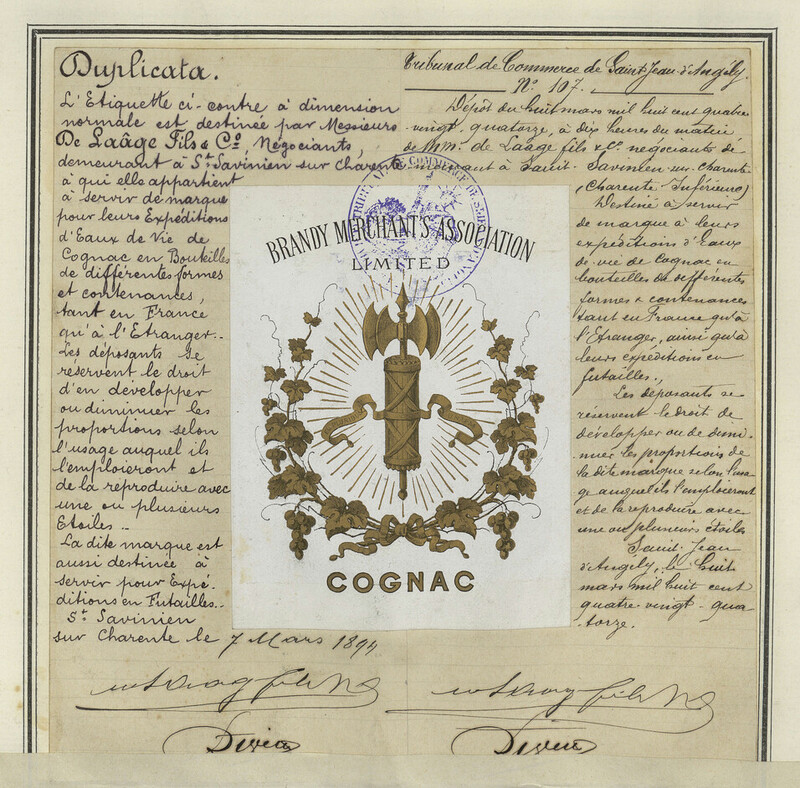 Duplicata.
L'Etiquette ci-contre à dimension
normale est destinée par Messieurs
De Laâge Fils & Cº, Négociants,
demeurant à St Savinien sur Charente
à qui elle appartient
à servir de marque
pour leurs Expéditions
d'Eaux de Vie de
Cognac en Bouteilles
de différentes formes
et contenances,
tant en France
qu'à l'Etranger..
Les déposants se
réservent le droit
d'en développer
ou diminuer les
proportions selon
l'usage auquel ils
l'emploieront et
de la reproduire avec
une ou plusieurs
Etoiles..
La dite marque est
aussi destinée à
servir pour Expé-
ditions en Futailles..
St Savinien
sur Charente le 7 Mars 1894
BRANDY MERCHANT'S ASSOCIATION
LIMITED
COGNAC
Tribunal de Commerce de Saint Jean d'Angély.
Nº 107.
Dépôt du huit mars mil huit cent quatre
vingt quatorze, à dix heures du matin
de MM. de Laâge fils & Cº négociants de-
meurant à Saint-Savinien-sur-Charente
(Charente Inférieure)
Destiné à servir
de marque à leurs
expéditions d'Eaux
de vie de Cognac en
bouteilles de différentes
formes & contenances
tant en France qu'à
l'Etranger, ainsi qu'à
leurs expéditions en
futailles.
Les déposants se
réservent le droit de
développer ou de dimi-
nuer les proportions de
la dite marque selon l'usa-
ge auquel ils l'emploieront
et de la reproduire avec
une ou plusieurs étoiles
Saint-Jean
d'Angély, le huit
mars mil huit cent
quatre vingt-qua-
torze.